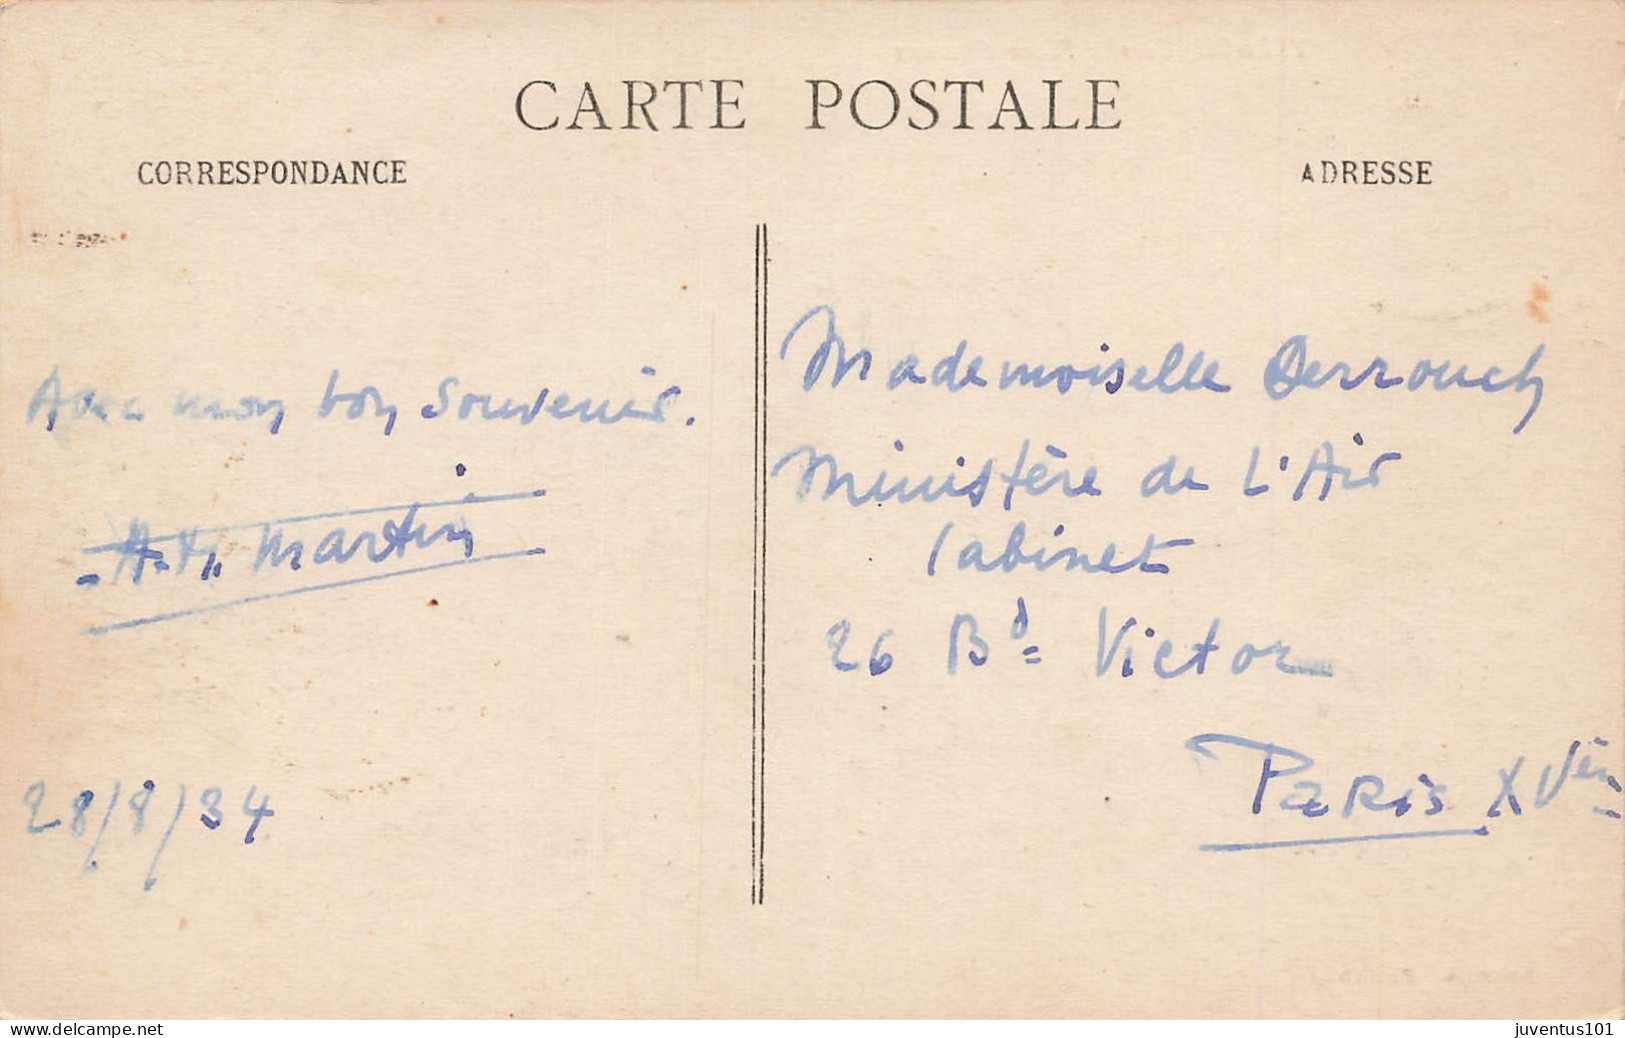 CARTE POSTALE
CORRESPONDANCE
ADRESSE
Avec mon bon souvenir.
Martin
28/8/34
Mademoiselle Derrouch
Ministère de L'Air
Cabinet
26 Bd Victor
Paris XVèm
delcampe.net
juventus101